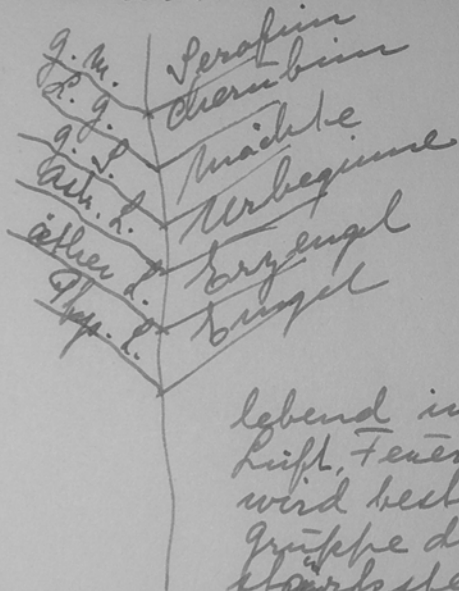 g. M. Serafim
L. g. Cherubim
g. L. Mächte
Astr. L. Urbeginne
äther L. Erzengel
Phys. L. Engel
lebend in
Luft, Feuer
wird best
gruppe d